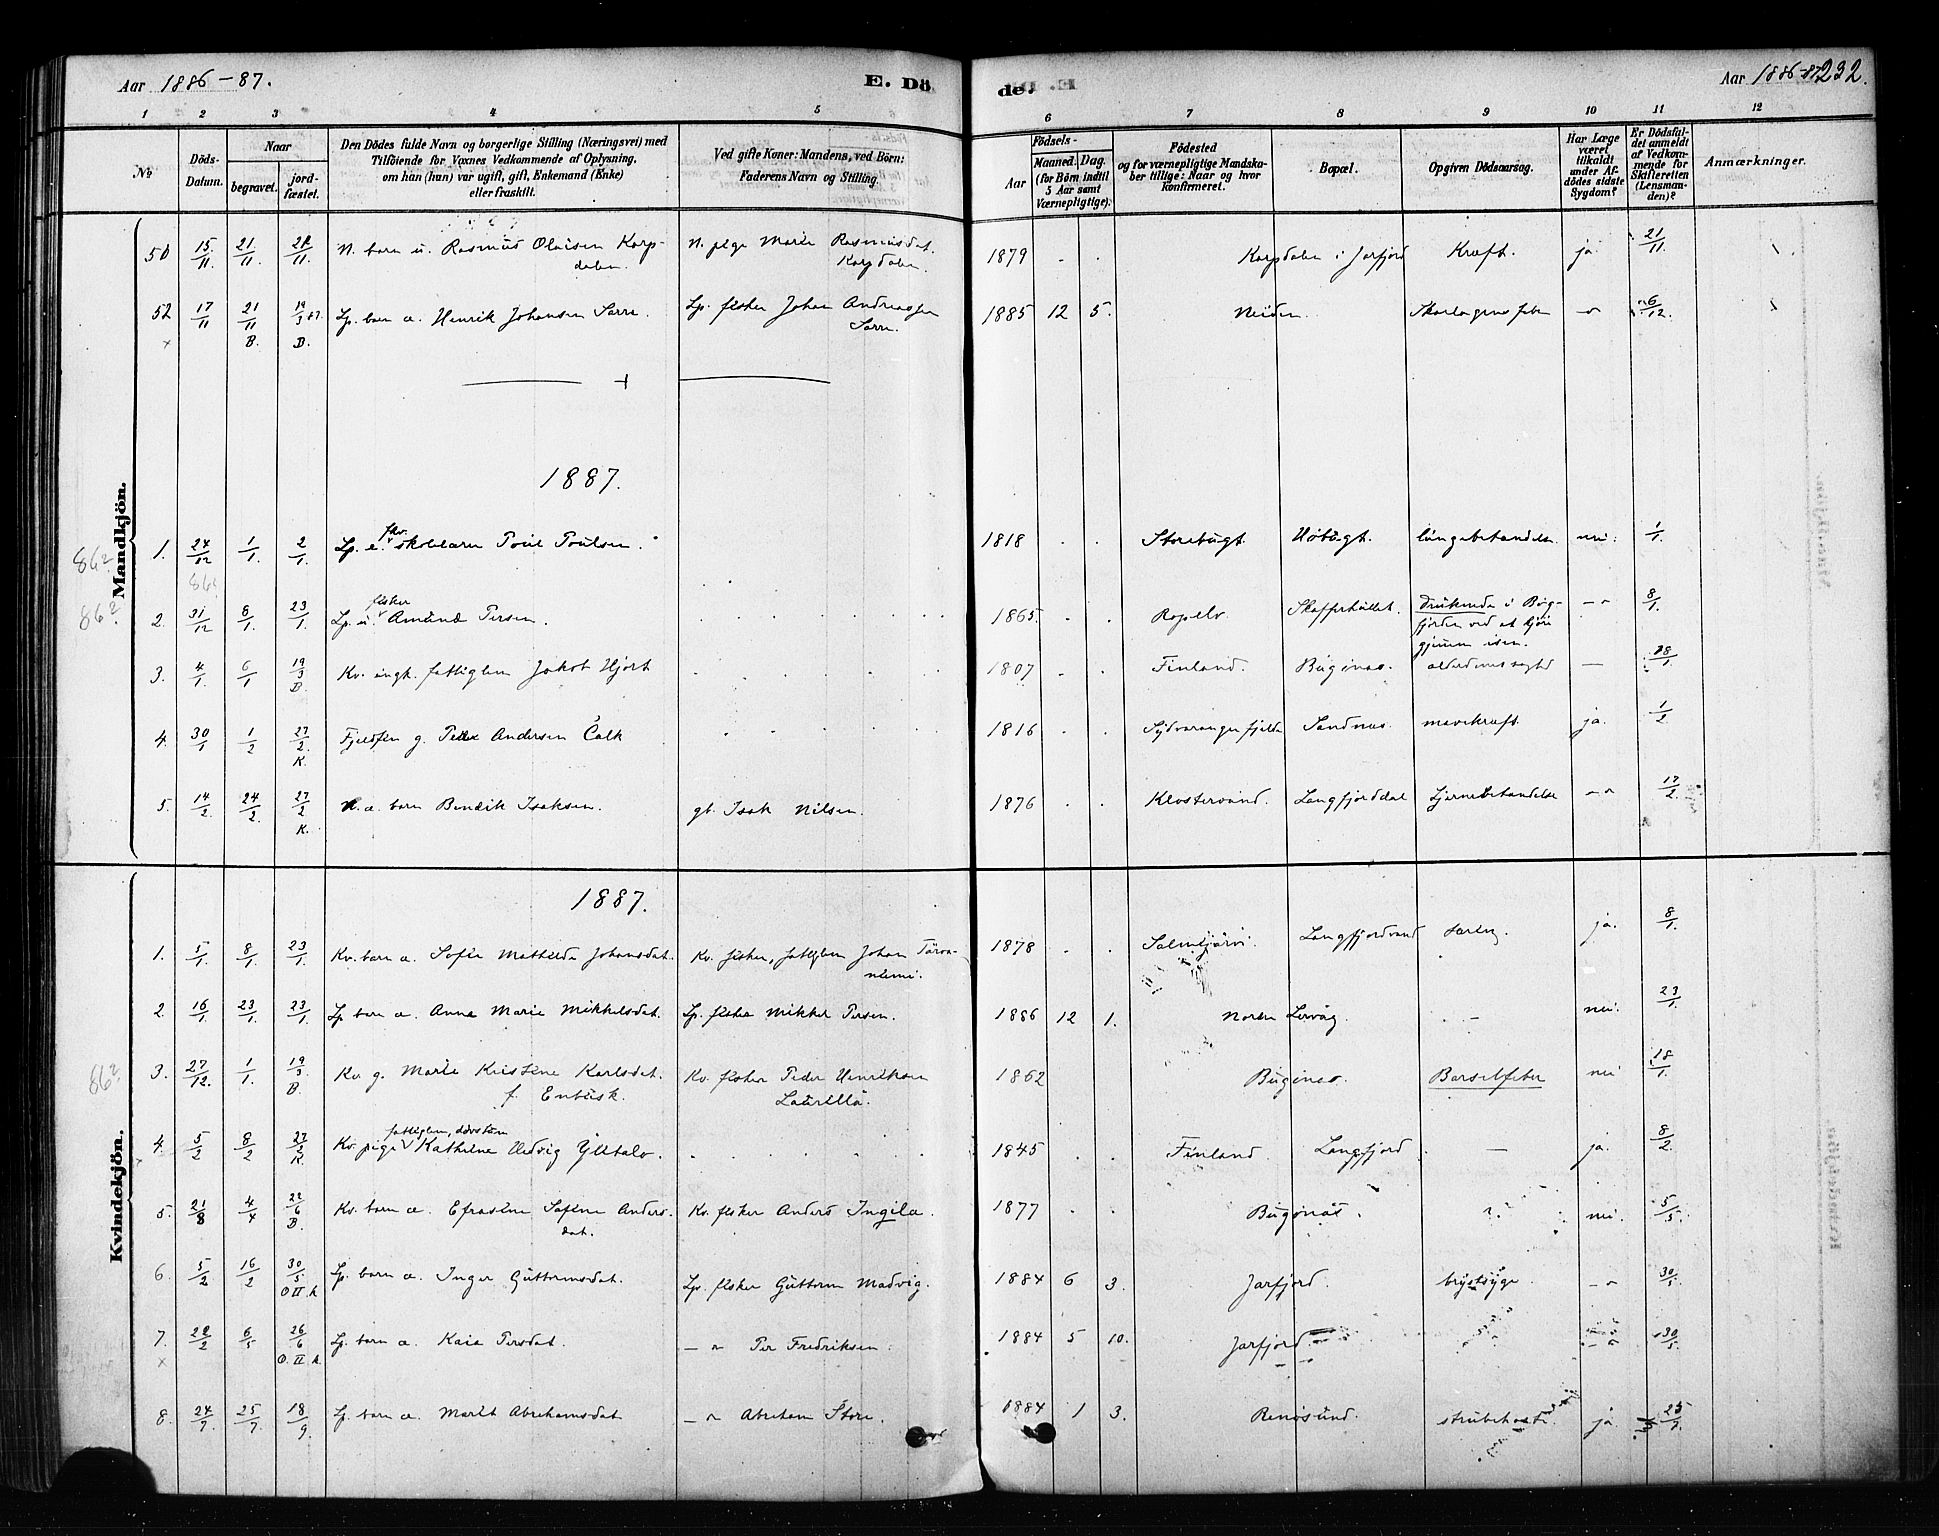 Aar 1886-87.
E. Dö
1 2 3 4 5
№
Döds-Datum.
Naar
begravet.
jord-fæstet.
Den Dödes fulde Navn og borgerlige Stilling (Næringsvei) med
Tilföiende for Voxnes Vedkommende af Oplysning,
om han (hun) var ugift, gift, Enkemand (Enke)
eller fraskilt.
Ved gifte Koner: Mandens, ved Börn:
Faderens Navn og Stilling.
Mandkjön.
50 15/11. 21/11. 21/11. N. barn u. Rasmus Olaisen Karp-
dalen. N. pige Marie Rasmusdat.
Karpdalen.
52 17/11 21/11 B. 19/3 87. B. Lp. barn u. Henrik Johansen Sarre. Lp. fisker Johan Andreassen
Sarre.
1887.
86? 1. 24/12 1/1. 2/1. Lp. e. skolelærer Poul Poulsen.
86? 2. 31/12 8/1. 23/1. Lp. u. fisker Amund Persen.
3. 4/1. 6/1 19/3 B. Kv. fattiglem Jakob Hjort
4. 30/1 1/2 27/2. K. Fjeldfin g. Peder Andersen Čalk
5. 14/2. 24/2. 27/2 K. N. u. barn Bendik Isaksen. gb. Isak Nilsen.
Kvindekjön.
1887.
1. 5/1. 8/1. 23/1. Kv. barn u. Sofie Mathilda Johansdat. Kv. fisker, fattiglem Johan Törva-
niemi.
2. 16/1. 23/1. 23/1. Lp barn u. Anne Marie Mikkelsdat. Lp. fisker Mikkel Persen.
86? 3. 27/12. 1/1. 19/3 B. Kv. g. Marie Kristine Karlsdat.
f. Enbusk. Kv. fisker Peder Henriksen
Laurilla.
4. 5/2 8/2 27/2 K. Kv. pige fattiglem, døvstum Kathrine Hedvig Ylitalo.
5. 21/8 4/4 22/6 B. Kv. barn u. Efrosine Sofine Anders-
dat. Kv. fisker Anders Ingila.
6. 5/2 16/2 30/5 O II. k. Lp. barn u. Inger Guttormsdat. Lp. fisker Guttorm Madvig.
7. 6/5 26/6 O. II k. Lp. barn u. Kaia Persdat. Per Fredriksen.
8. 24/7. 25/7. 18/9. Lp. barn u. Marit Abrahamsdat Abraham Store.
de.
Aar 1886-87 232.
6 7 8 9 10 11 12
Födsels-
Aar
Maaned. Dag.
(for Börn indtil
5 Aar samt
Værnepligtige).
Födested
og for værnepligtige Mandska-
ber tillige: Naar og hvor
konfirmeret.
Bopæl.
Opgiven Dödsaarsag.
Har Læge
været
tilkaldt
under Af-
dödes sidste
Sygdom?
Er Dödsfal-
det anmeldt
af Vedkom-
mende for
Skifteretten
(Lensman-
den)?
Anmærkninger.
1879 Karpdalen i Jarfjord Kræft. ja 21/11.
1885 12 5. Neiden. Skarlagensfeber 6/12.
1818 Storebugt. Uöbugt. lungebetændelse nei. 1/1.
1865. Ropelv. Skafferhullet. druknede i Bøg-
fjorden ved at kjøre
gjennem isen. 8/1.
1807 Finland. Bugønæs. alderdomssvaghed 18/1.
1816 Sydvaranger fjelde Sandnæs. mavekræft ja. 1/2
1876 Klostervand. Langfjorddal hjernebetændelse 17/2.
1878 Salmijärvi. Langfjordvand tæring. ja. 8/1.
1886 12 1. Leirvåg. nei. 23/1.
1862 Bugönæs. Barselfeber nei 18/1.
1845 Finland. Langfjord ja. 8/2.
1877 Bugönäs. ? nei. 5/5.
1884 6 3. Jarfjord. brystsyge. 30/5.
1884 5 10. Jarfjord. 30/5.
1884 1 3. Renösund. strubehoste ja 25/7.